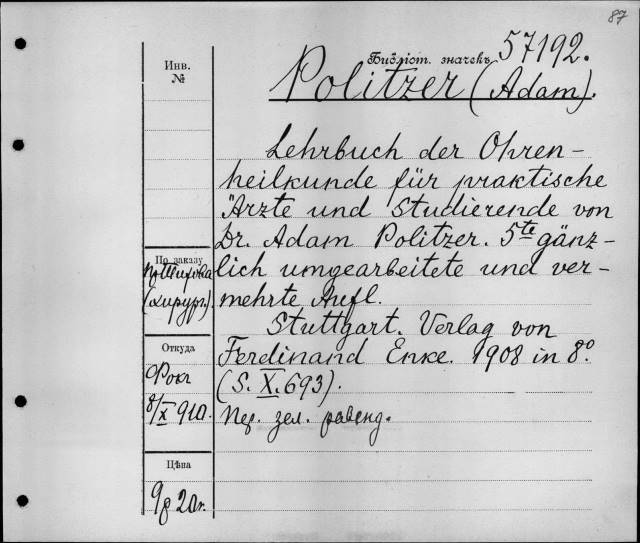 87
Инв.
№
Библіот. значекъ 57192.
Politzer (Adam).
Lehrbuch der Ohren-
heilkunde für praktische
Ärzte und Studierende von
Dr. Adam Politzer. 5te gänz-
lich umgearbeitete und ver-
mehrte Aufl.
Stuttgart. Verlag von
Ferdinand Enke. 1908 in 8°.
(S. X. 693).
Пер. зел.
По заказу
(хирург).
Откуда
8/X 910.
Цѣна
9р 20к.